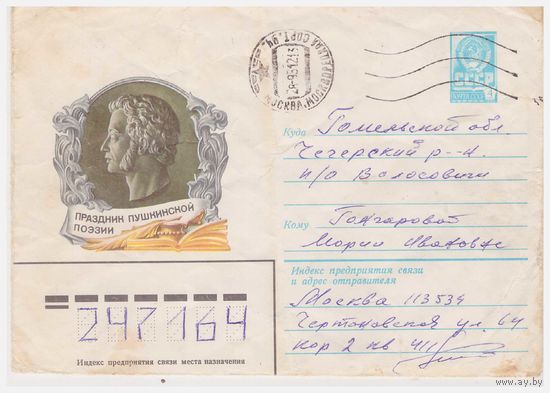 МОСКВА
СССР
ПРАЗДНИК ПУШКИНСКОЙ
ПОЭЗИИ
Куда Гомельской обл.
Чечерский р-н
п/о Волосовичи
Кому Гончаровой
Марии Ивановне
Индекс предприятия связи
и адрес отправителя
Москва 113534
Чертановская ул. 64
кор 2 кв 411
247164
Индекс предприятия связи места назначения
www.ay.by